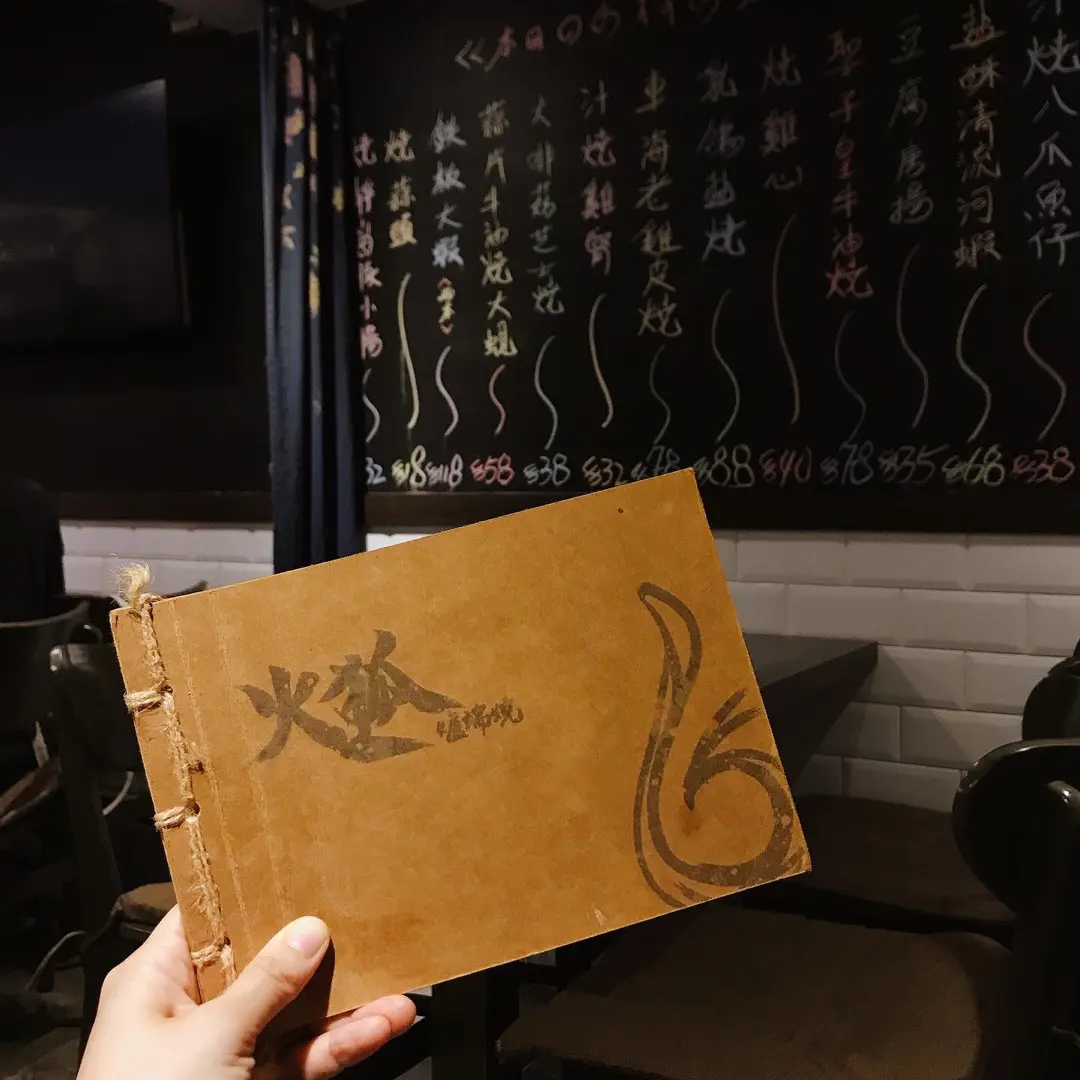 <<本日のお料
燒八爪魚仔
$38
鹽酥清流河蝦
$68
豆腐唐揚
$35
聖子皇牛油燒
$78
燒雞心
$40
乳鴿鹽燒
$88
車海老雞皮燒
$78
汁燒雞
$32
大啡菇芝士燒
$38
蒜片牛油燒大蜆
$58
鐵板大蝦
$118
燒蒜頭
$18
豚小腸
32
火狐
爐端燒